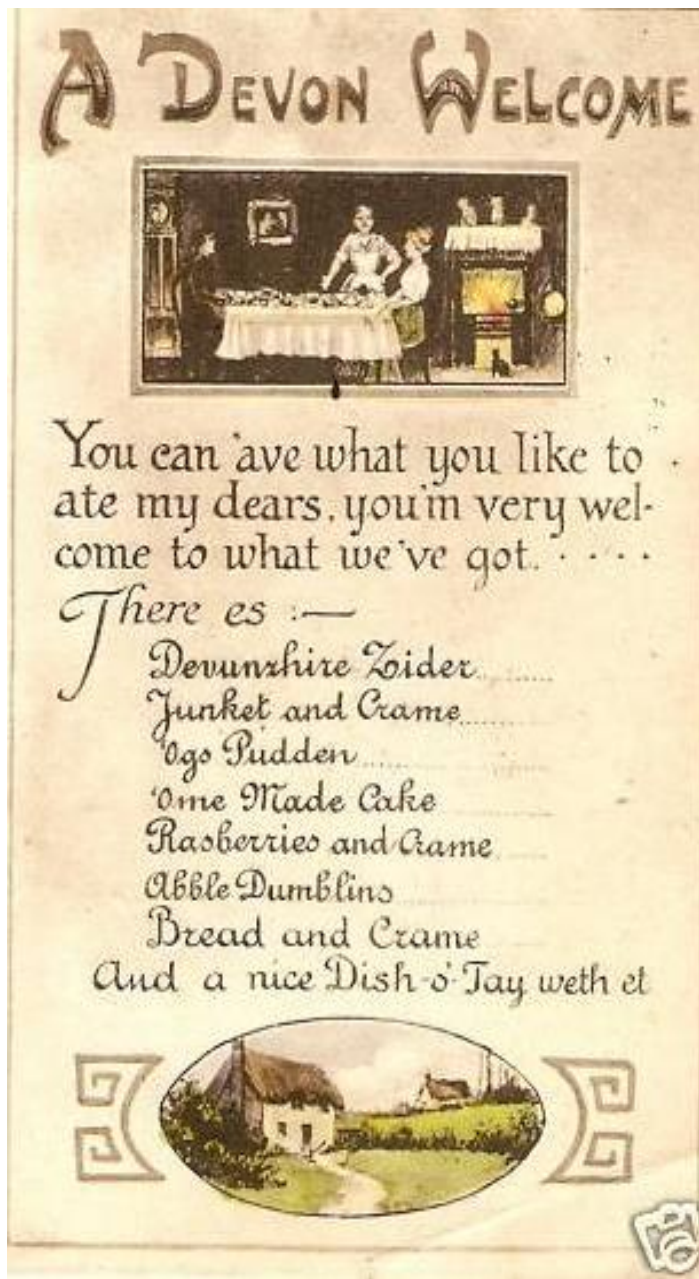 A DEVON WELCOME
You can 'ave what you like to
ate my dears, you'm very wel-
come to what we've got. . . . .
There es :—
Devunzhire Zider
Junket and Crame
'Ogs Pudden
'Ome Made Cake
Rasberries and Crame
Abble Dumblins
Bread and Crame
And a nice Dish-o'-Tay weth et